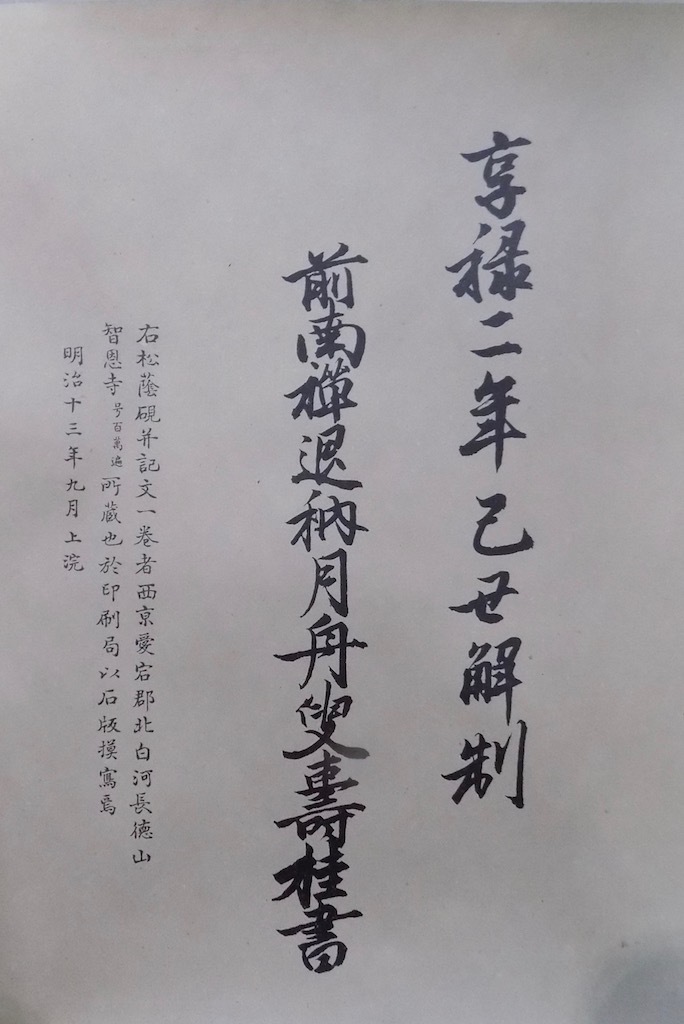 享禄二年己丑解制
前南禅退衲月舟叟壽桂書
右松蔭硯并記文一巻者西京愛宕郡北白河長德山
智恩寺号百萬遍所蔵也於印刷局以石版摸寫焉
明治十三年九月上浣